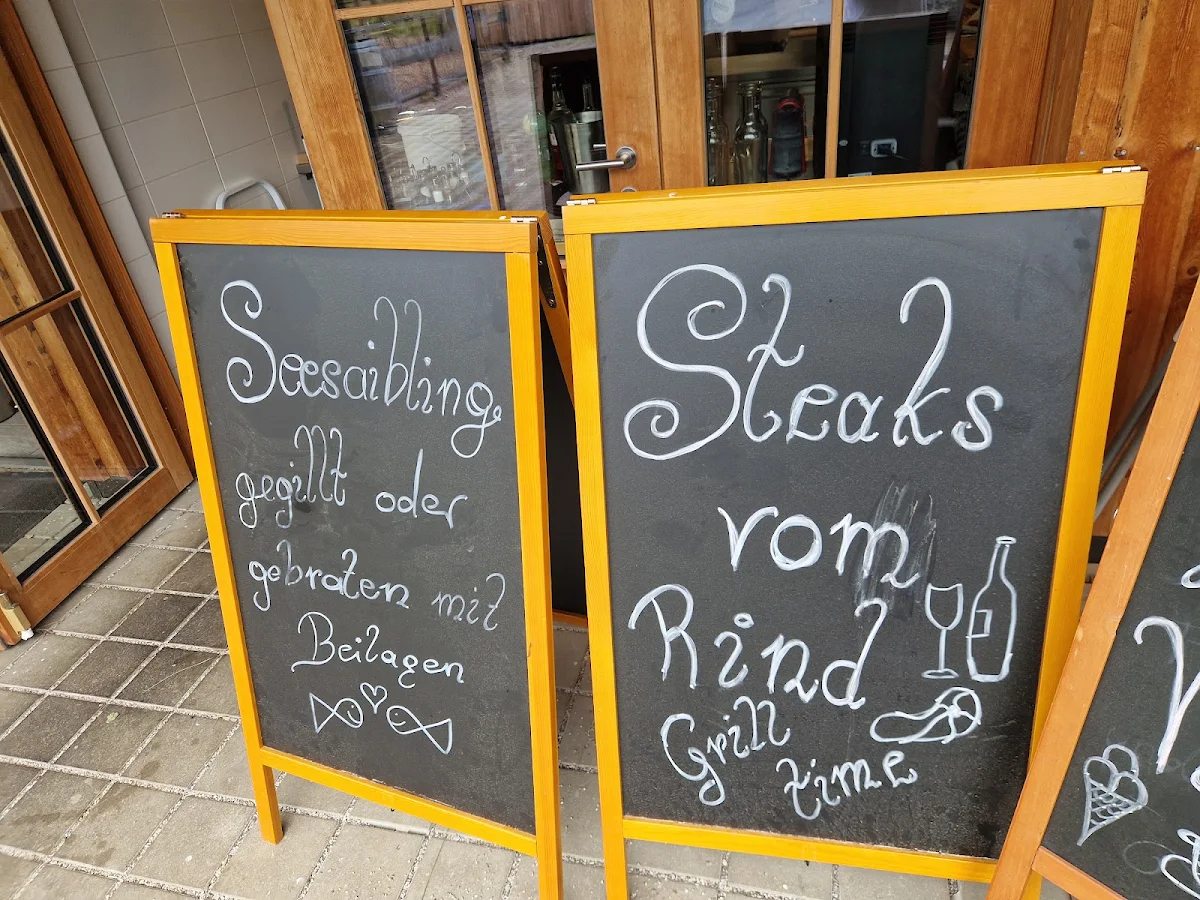 Seesaibling
gegillt oder
gebraten mit
Beilagen
Steaks
vom
Rind
Grill
time